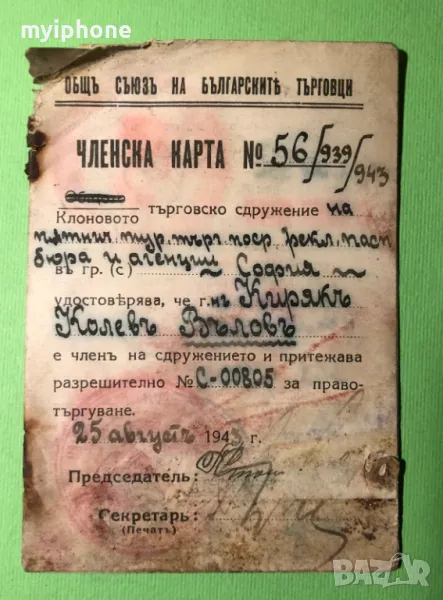 myiphone
ОБЩЪ СЪЮЗЪ НА БЪЛГАРСКИТѢ ТЪРГОВЦИ
ЧЛЕНСКА КАРТА № 56/939/943
Клоновото търговско сдружение на
пѫтнич. тур. търг. поср. рекл.
бюра и агенции
въ гр. (с) София
удостовѣрява, че г. нъ Кирякъ
Колевъ Въловъ
е членъ на сдружението и притежава
разрешително № С-00805 за право-
търгуване.
25 августъ 1943 г.
Председатель:
Секретарь:
(Печатъ)
BAZAR